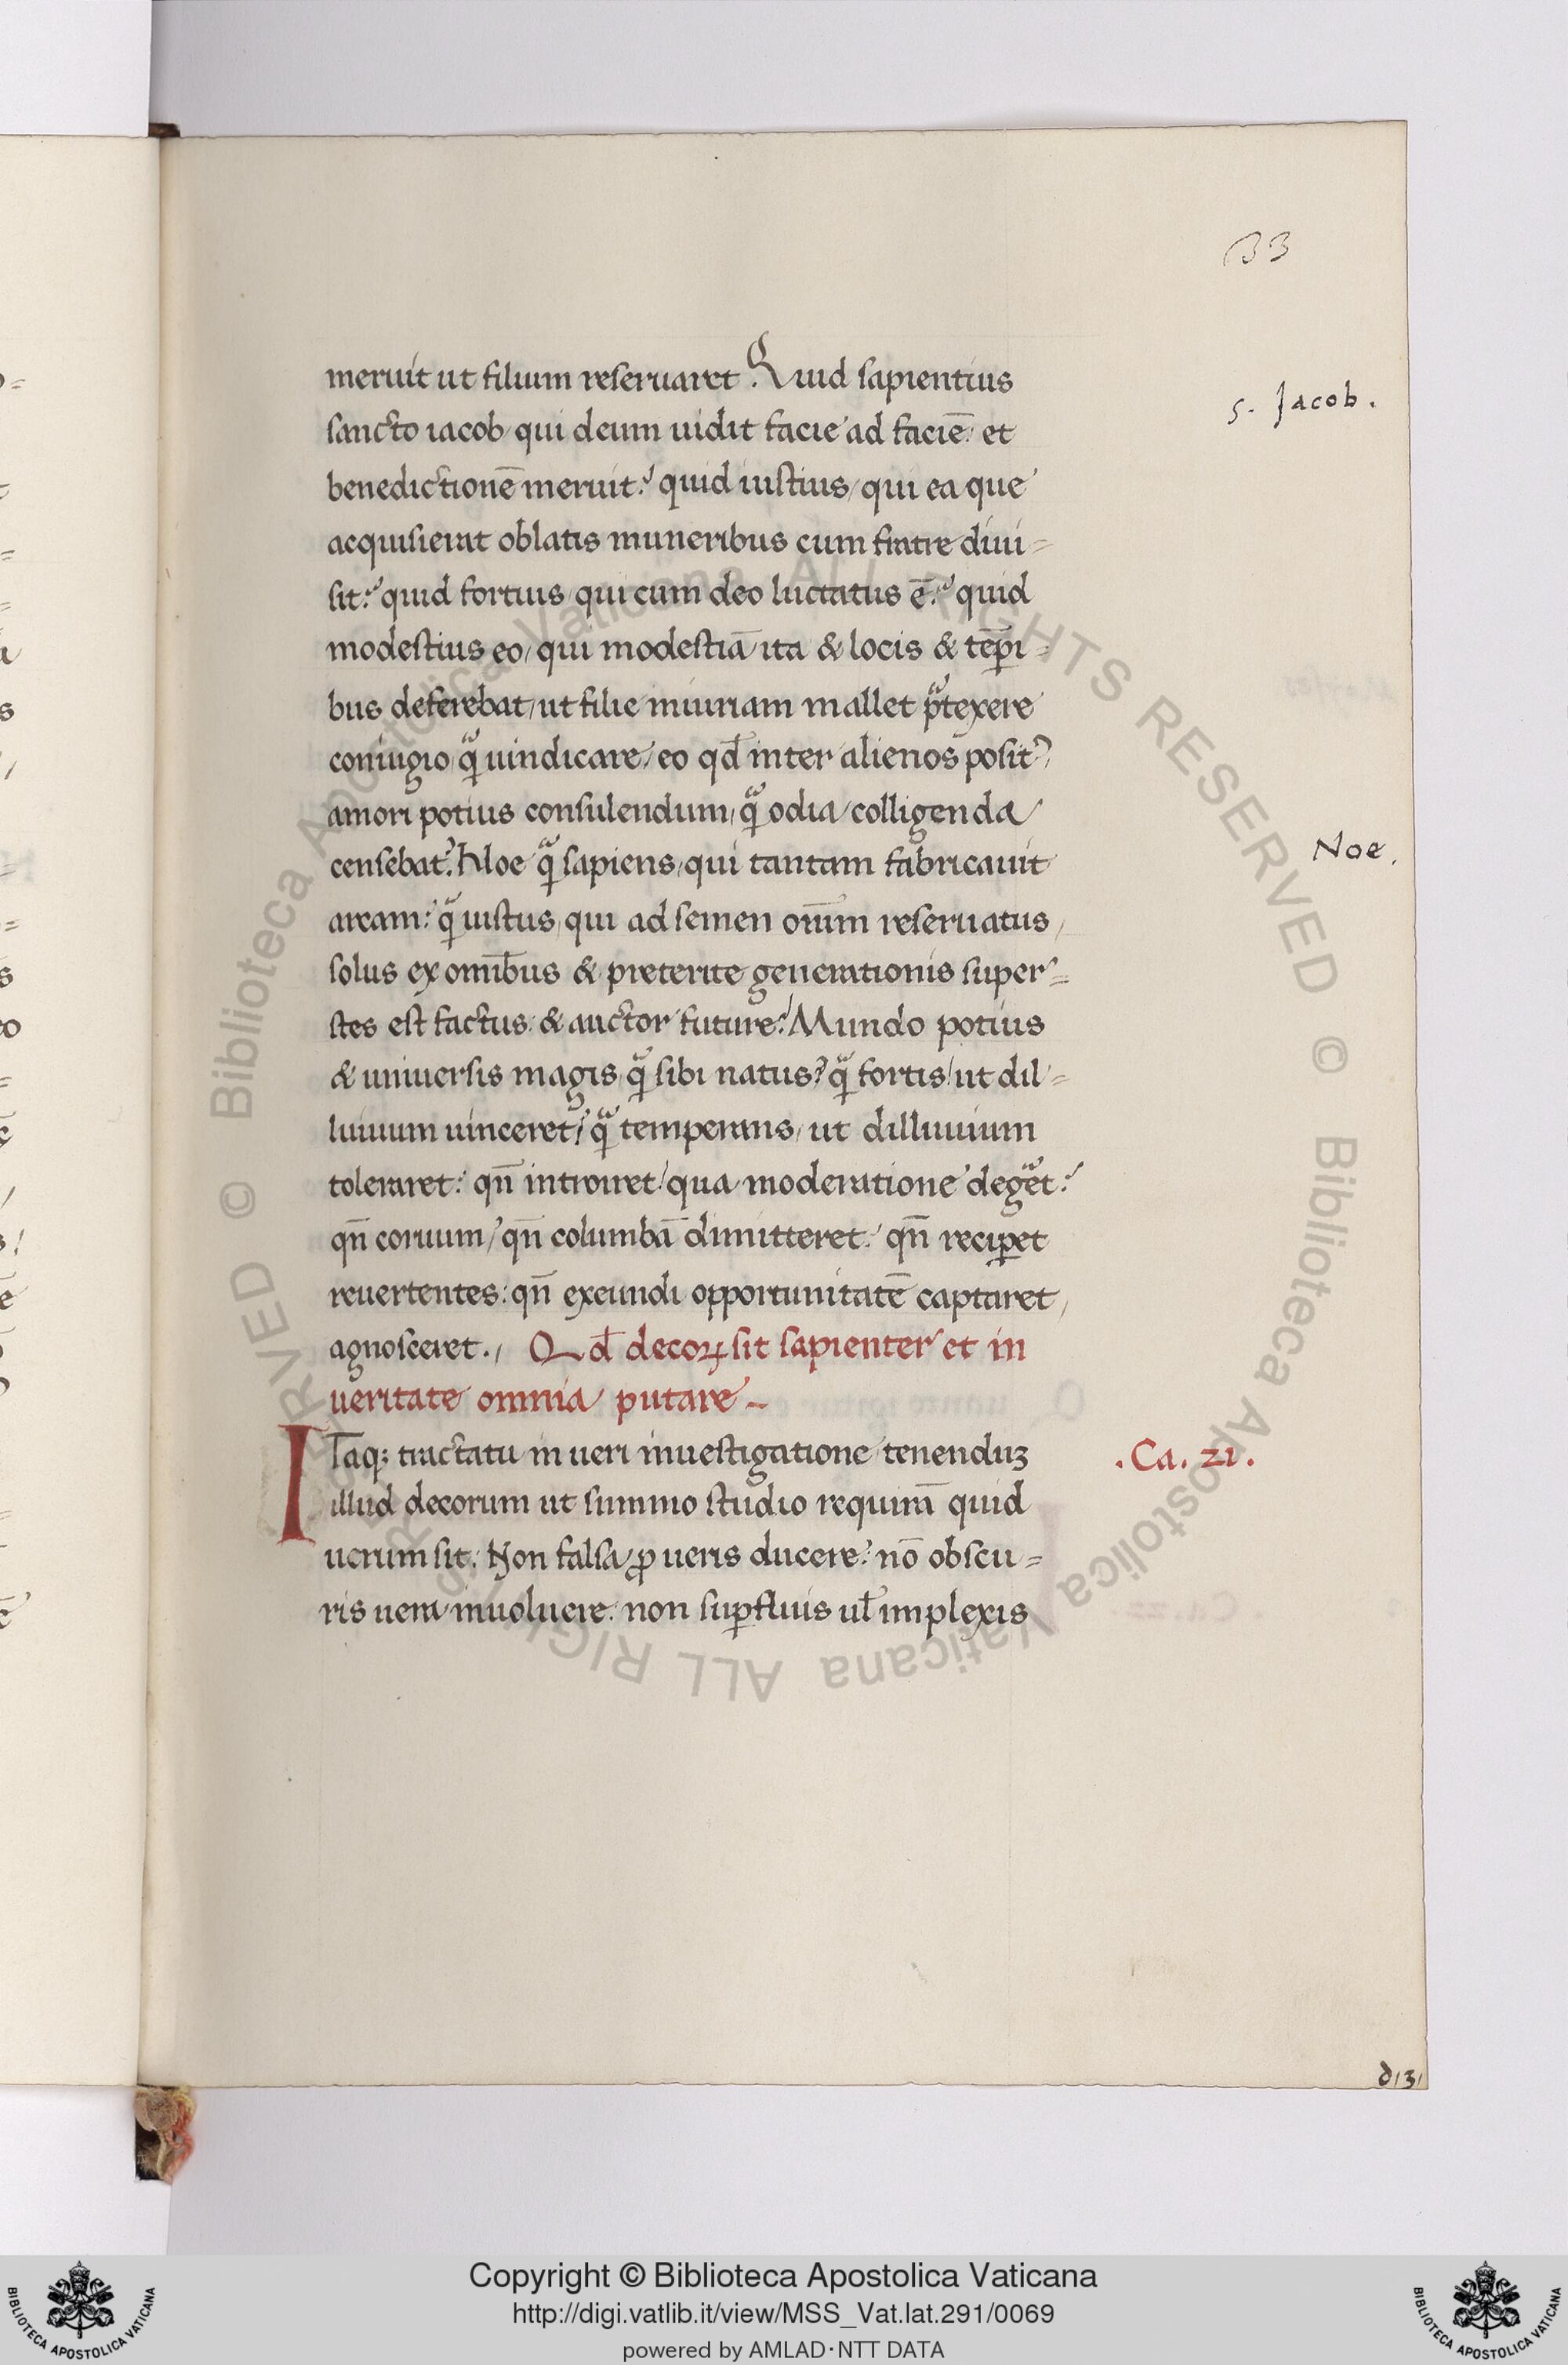 33
meruit ut filium reseruaret. Quid sapientius
s. Jacob.
sancto iacob/ qui deum uidit facie ad faciē: et
benedictionē meruit? quid iustius/ qui ea que
acquisierat oblatis muneribus cum fratre diui=
sit? quid fortius qui cum deo luctatus ē? quid
modestius eo/ qui modestiā ita & locis & tēp̲i=
bus deferebat/ ut filie iniuriam mallet p̃texere
coniugio q̃ uindicare/ eo qđ inter alienos posit⁹/
amori potius consulendum/ q̃ odia colligenda
censebat? Noe q̃ sapiens/ qui tantam fabricauit
Noe.
arcam? q̃ iustus/ qui ad semen oīum reseruatus/
solus ex omībus & preterite generationis super=
stes est factus & auctor future? Mundo potius
& uniuersis magis q̃ sibi natus? q̃ fortis/ ut dil=
luuium uinceret? q̃ temperans/ ut dilluuium
toleraret? qn̄ introiret/ qua moderatione degeret?
qn̄ coruum/ qn̄ columbā dimitteret? qn̄ recip̲et
reuertentes: qn̄ exeundi opportunitatē captaret/
agnosceret./ Qđ decoꝝ sit sapienter et in
ueritate omnia putare –
ITaq; tractatu in ueri inuestigatione tenenduꝫ
.Ca. 21.
illud decorum ut summo studio requirāt quid
uerum sit. Non falsa ꝓ ueris ducere? nō obscu=
ris uera inuoluere: non sup̲fluis ul̄ implexis
d131
© Biblioteca Apostolica Vaticana ALL RIGHTS RESERVED
© Biblioteca Apostolica Vaticana ALL RIGHTS RESERVED
Copyright © Biblioteca Apostolica Vaticana
http://digi.vatlib.it/view/MSS_Vat.lat.291/0069
powered by AMLAD·NTT DATA
BIBLIOTECA APOSTOLICA VATICANA
BIBLIOTECA APOSTOLICA VATICANA